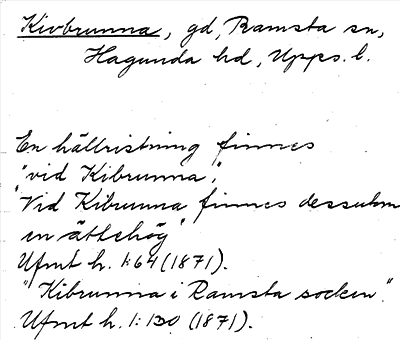 Kivbrunna, gd, Ramsta sn,
Hagunda hd, Upps. l.
En hällristning finnes
"vid Kibrunna",
"Vid Kibrunna finnes dessutom
en ättehög"
Ufmt h. 1:64 (1871).
"Kibrunna i Ramsta socken".
Ufmt h. 1:130 (1871).